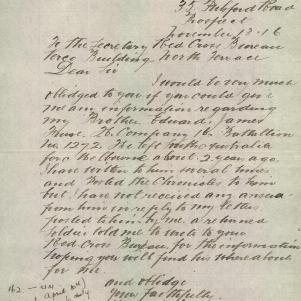 35 Flixford Road
Prospect
November 13. 16
To the Secretary Red Cross Bureau
Verco Building North Terrace
Dear Sir
I would be very much
obliged to you if you could give
me any information regarding
my Brother Edward, James
16 Battallion
No 1272. He left
for Melbourne about 2 year ago.
I have written to him several times
and Posted the Chronicles to him
but I have not received any answer
from him in reply to my letters
posted to him by me, a returned
Soldier told me to write to your
Red Cross Bureau for the information
hoping you will find his whereabout
for me.
and oblidge
Your faithfully